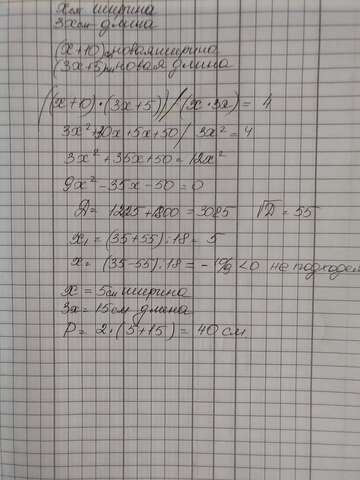 x см ширина
3x см длина
(x+10) см новая ширина
(3x+5) см новая длина
((x+10)·(3x+5))/(x·3x) = 4
3x²+30x+5x+50/3x²=4
3x²+35x+50=12x²
9x²-35x-50=0
D= 1225+1800=3025 √D=55
x₁=(35+55):18= 5
x=(35-55):18=-10/9<0 не подходит
x=5см ширина
3x=15см длина
P= 2·(5+15)=40 см